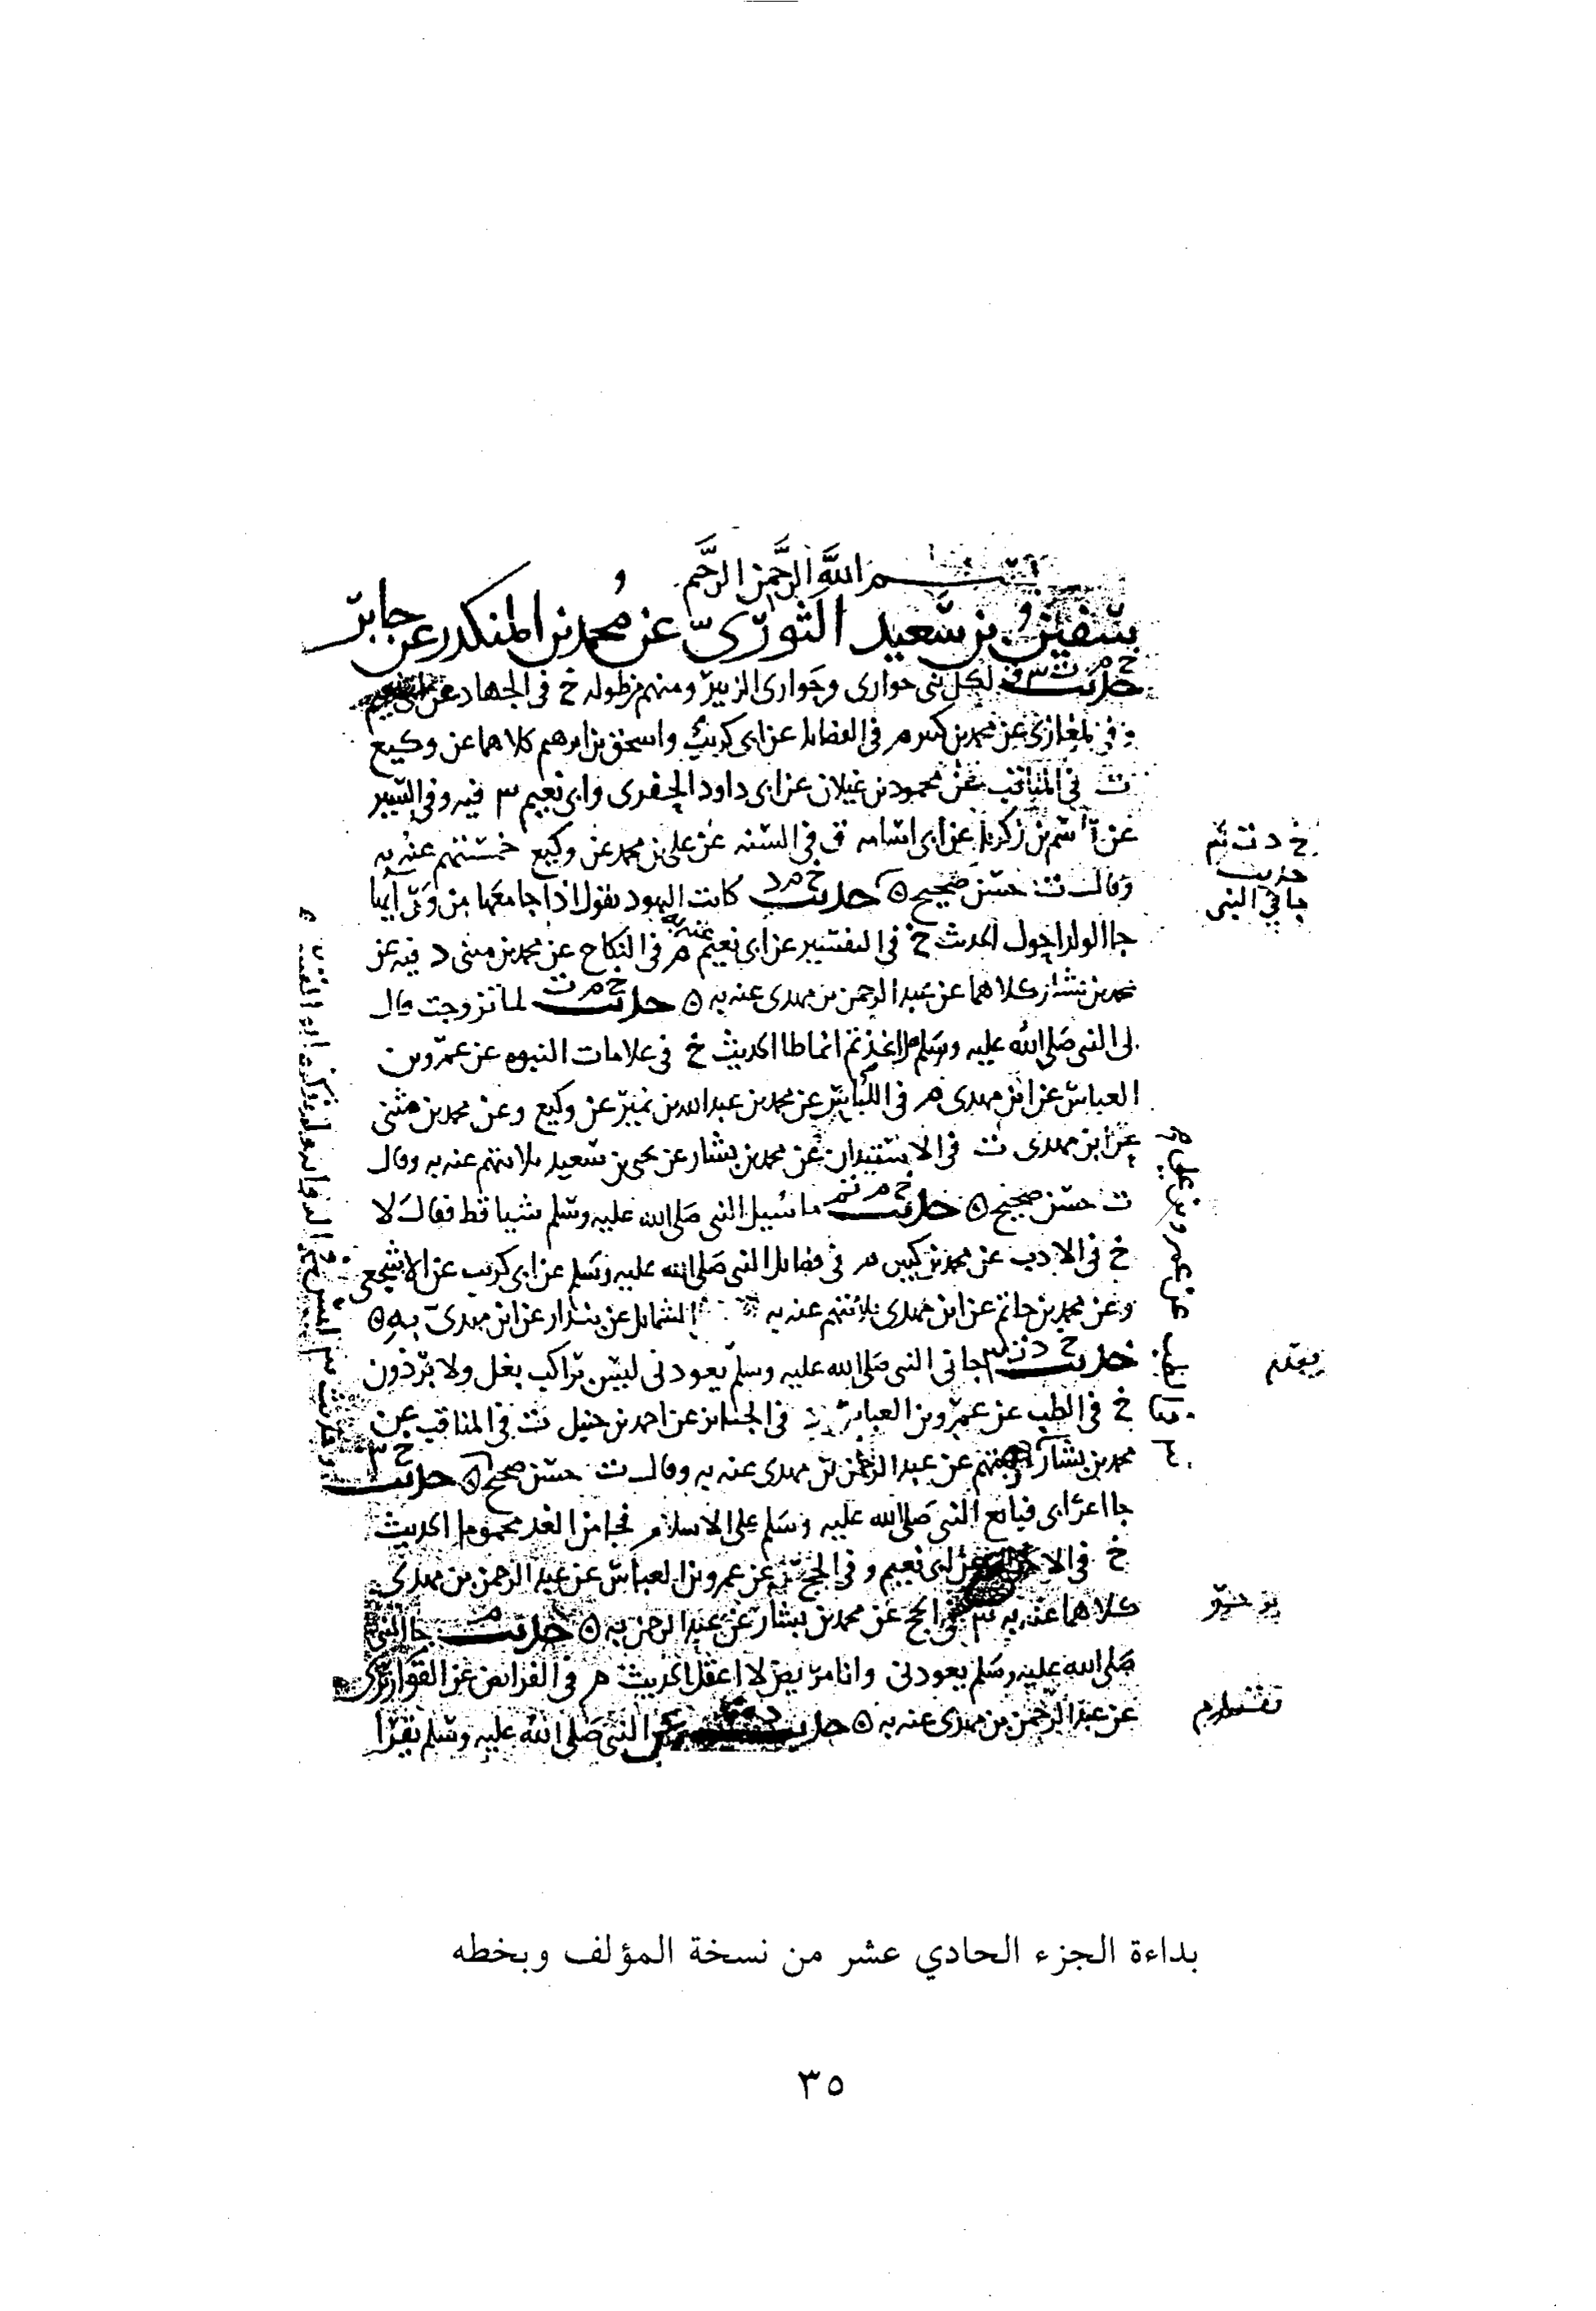 بسم الله الرحمن الرحيم
سفين بن سعيد الثوري عن محمد بن المنكدر عن جابر
حديث لكل نبي حواري وحواري الزبير ومنهم من طوله خ في الجهاد عن ابي نعيم
وفي المغازي عن محمد بن كثير م في الفضايل عن ابي كريب واسحق بن ابرهيم كلاهما عن وكيع
ت في المناقب عن محمود بن غيلان عن ابي داود الحفري وابي نعيم س فيه وفي السير
عن زكريا عن ابي اسامه ق في السنه عن علي بن محمد عن وكيع خمستهم عنه به
وقال ت حسن صحيح ٥ حديث خ م د كانت اليهود تقول اذا جامعها من ورايها
جا الولد احول الحديث خ في التفسير عن ابي نعيم عنه به م في النكاح عن محمد بن مثنى د فيه عن
محمد بن بشار كلاهما عن عبد الرحمن بن مهدي عنه به ٥ حديث خ م ت لما تزوجت قال
لي النبي صلى الله عليه وسلم اتخذتم انماطا الحديث خ في علامات النبوه عن عمرو بن
العباس عن ابن مهدي م في اللباس عن محمد بن عبد الله بن نمير عن وكيع وعن محمد بن مثنى
عن ابن مهدي ت في الاستيذان عن محمد بن بشار عن يحيى بن سعيد ثلاثتهم عنه به وقال
ت حسن صحيح ٥ حديث خ م تم ما سيل النبي صلى الله عليه وسلم شيا قط فقال لا
خ في الادب عن محمد بن كثير م في فضايل النبي صلى الله عليه وسلم عن ابي كريب عن الاشجعي
وعن محمد بن حاتم عن ابن مهدي ثلاثتهم عنه به الشمايل عن بندار عن ابن مهدي به ٥
حديث جاني النبي صلى الله عليه وسلم يعودني ليس براكب بغل ولا برذون
خ في الطب عن عمرو بن العباس د في الجنايز عن احمد بن حنبل ت في المناقب عن
محمد بن بشار عن عبد الرحمن بن مهدي عنه به وقال ت حسن صحيح ٥ حديث خ س
جا اعرابي فبايع النبي صلى الله عليه وسلم على الاسلام فجا من الغد محموما الحديث
خ في عن ابي نعيم وفي الحج عن عمرو بن العباس عن عبد الرحمن بن مهدي
كلاهما عنه به س في الحج عن محمد بن بشار عن عبد الرحمن به ٥ حديث م جا النبي
صلى الله عليه وسلم يعودني وانا مريض لا اعقل الحديث م في الفرايض عن القواريري
عن عبد الرحمن بن مهدي عنه به ٥ حديث النبي صلى الله عليه وسلم يقرا
خ د ت تم
حديث
جاني النبي
بداءة الجزء الحادي عشر من نسخة المؤلف وبخطه
٣٥